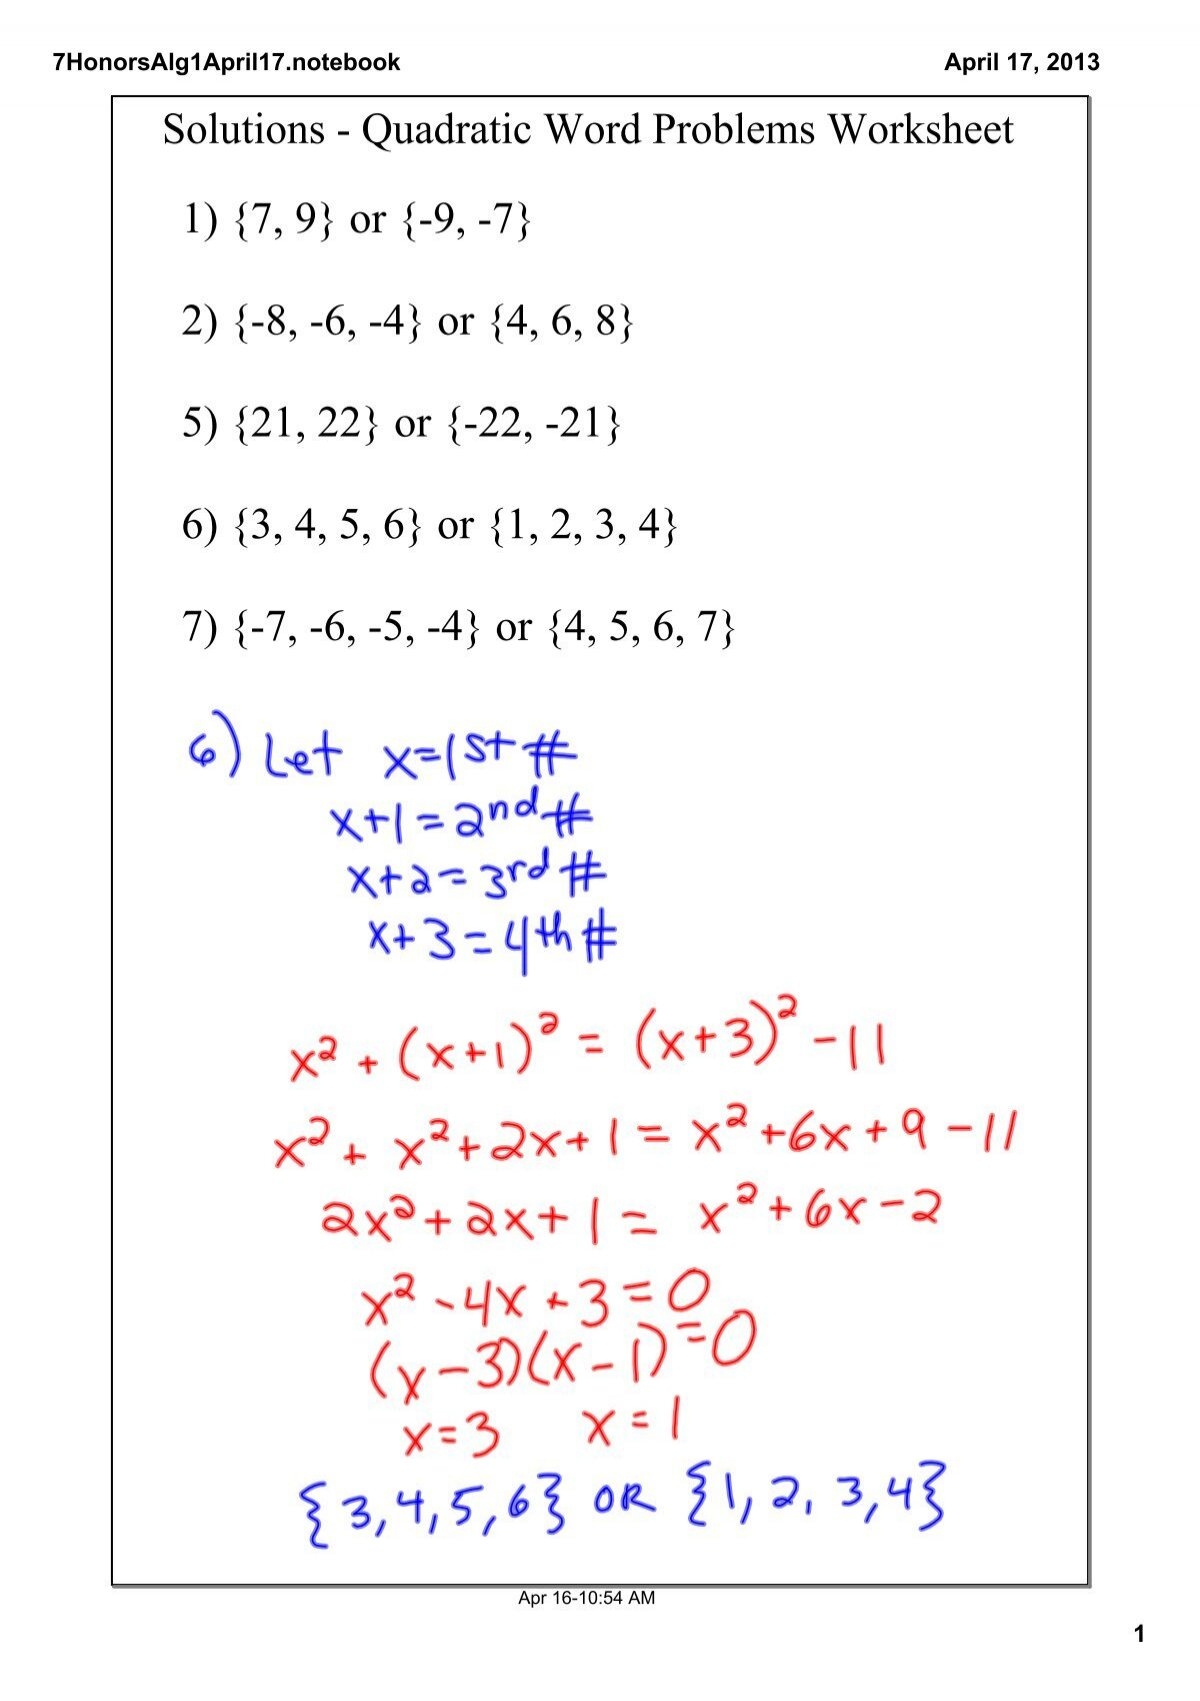 7HonorsAlg1April17.notebook April 17, 2013
Solutions - Quadratic Word Problems Worksheet
1) {7, 9} or {-9, -7}
2) {-8, -6, -4} or {4, 6, 8}
5) {21, 22} or {-22, -21}
6) {3, 4, 5, 6} or {1, 2, 3, 4}
7) {-7, -6, -5, -4} or {4, 5, 6, 7}
6) Let x=1st #
x+1=2nd #
x+2=3rd #
x+3=4th #
x² + (x+1)² = (x+3)² -11
x² + x² + 2x + 1 = x² + 6x + 9 - 11
2x² + 2x + 1 = x² + 6x - 2
x² - 4x + 3 = 0
(x-3)(x-1) = 0
x=3 x=1
{3,4,5,6} OR {1,2,3,4}
Apr 16-10:54 AM
1